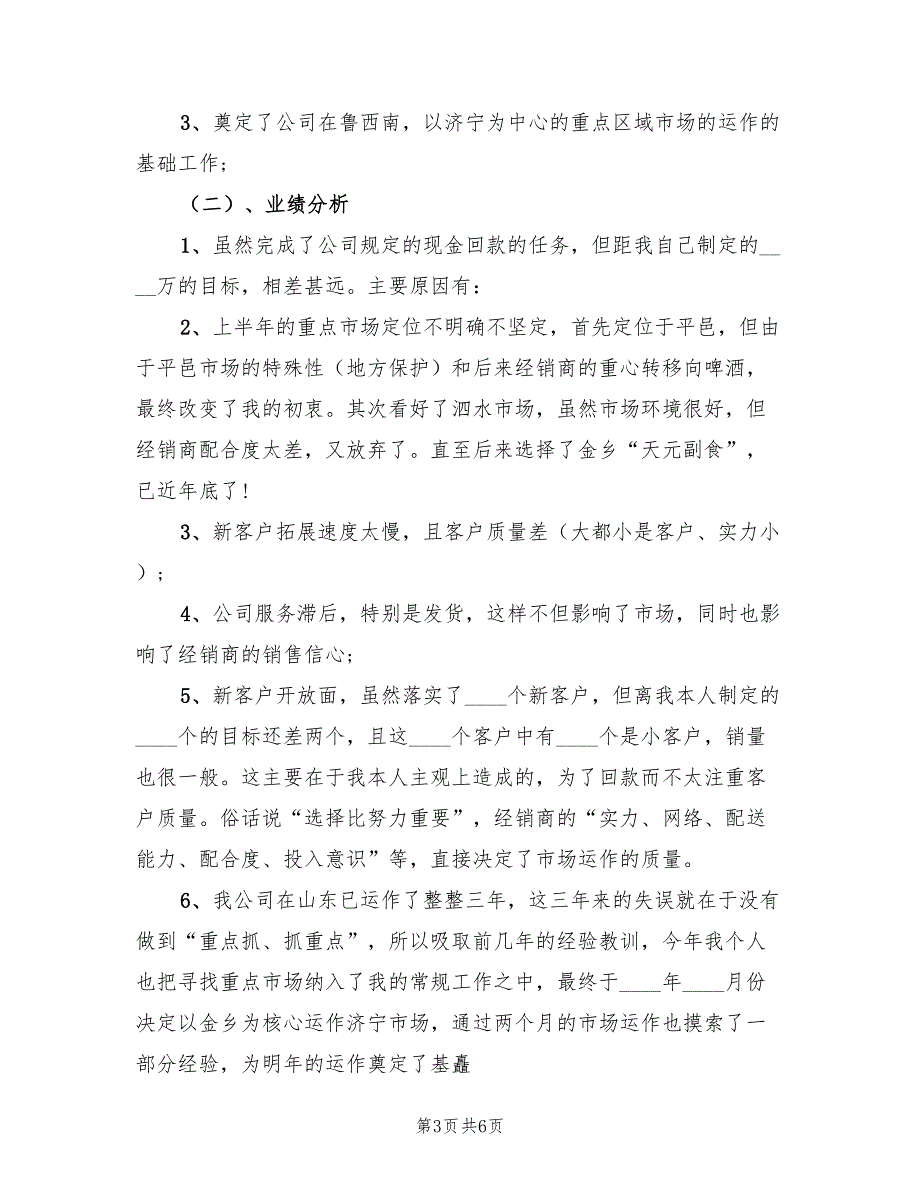 3、奠定了公司在鲁西南，以济宁为中心的重点区域市场的运作的
基础工作;
（二）、业绩分析
1、虽然完成了公司规定的现金回款的任务，但距我自己制定的__
__万的目标，相差甚远。主要原因有：
2、上半年的重点市场定位不明确不坚定，首先定位于平邑，但由
于平邑市场的特殊性（地方保护）和后来经销商的重心转移向啤酒，
最终改变了我的初衷。其次看好了泗水市场，虽然市场环境很好，但
经销商配合度太差，又放弃了。直至后来选择了金乡“天元副食”，
已近年底了!
3、新客户拓展速度太慢，且客户质量差（大都小是客户、实力小
）;
4、公司服务滞后，特别是发货，这样不但影响了市场，同时也影
响了经销商的销售信心;
5、新客户开放面，虽然落实了____个新客户，但离我本人制定的
____个的目标还差两个，且这____个客户中有____个是小客户，销量
也很一般。这主要在于我本人主观上造成的，为了回款而不太注重客
户质量。俗话说“选择比努力重要”，经销商的“实力、网络、配送
能力、配合度、投入意识”等，直接决定了市场运作的质量。
6、我公司在山东已运作了整整三年，这三年来的失误就在于没有
做到“重点抓、抓重点”，所以吸取前几年的经验教训，今年我个人
也把寻找重点市场纳入了我的常规工作之中，最终于____年____月份
决定以金乡为核心运作济宁市场，通过两个月的市场运作也摸索了一
部分经验，为明年的运作奠定了基矗
第3页共6页